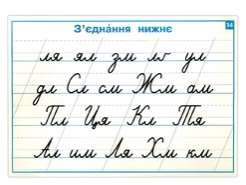 З'єднáння нижнє
14
ля ял зм лг ул
дл Сл см Жм ам
Пл Ця Кл Тя
Ал им Ля Хм км